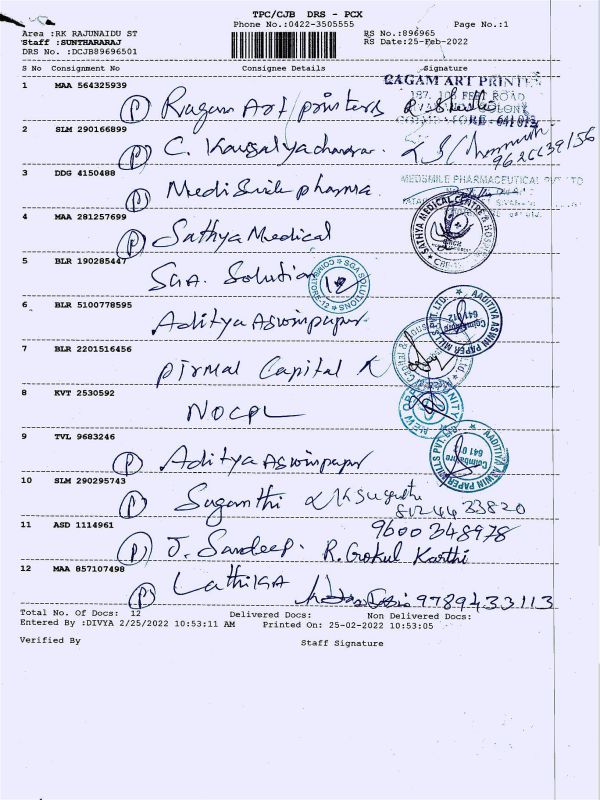 TPC/CJB DRS - PCX
Phone No.:0422-3505555 Page No.:1
Area :RK RAJUNAIDU ST RS No.:896965
Staff :SUNTHARARAJ RS Date:25-Feb-2022
DRS No. :DCJB89696501
S No Consignment No Consignee Details Signature
1 MAA 564325939
(P) Ragam Art printers
2 SLM 290166899
(P) C. Kausalya 9626639156
3 DDG 4150488
(P) Medi Smile pharma
MEDSMILE PHARMACEUTICAL PVT LTD
4 MAA 281257699
(P) Sathya Medical
SATHYA MEDICAL CENTRE & HOSPITAL
5 BLR 190285447
SGA. Solution
SGA SOLUTIONS COIMBATORE-12
6 BLR 5100778595
Aditya Aswinpapur
AADITYA ASWIN PAPER MILLS PVT. LTD. Coimbatore 641 012
7 BLR 2201516456
Pirmal Capital
8 KVT 2530592
NOCPL
9 TVL 9683246
(P) Aditya Aswinpapur
AADITYA ASWIN PAPER MILLS PVT. Coimbatore 641 012
10 SLM 290295743
(P) Suganthi 8124433820
11 ASD 1114961 9600348978
(P) J. Sandeep. R. Gokul Karthi
12 MAA 857107498
(P) Lathika 9789433113
Total No. Of Docs: 12 Delivered Docs: Non Delivered Docs:
Entered By :DIVYA 2/25/2022 10:53:11 AM Printed On: 25-02-2022 10:53:05
Verified By Staff Signature